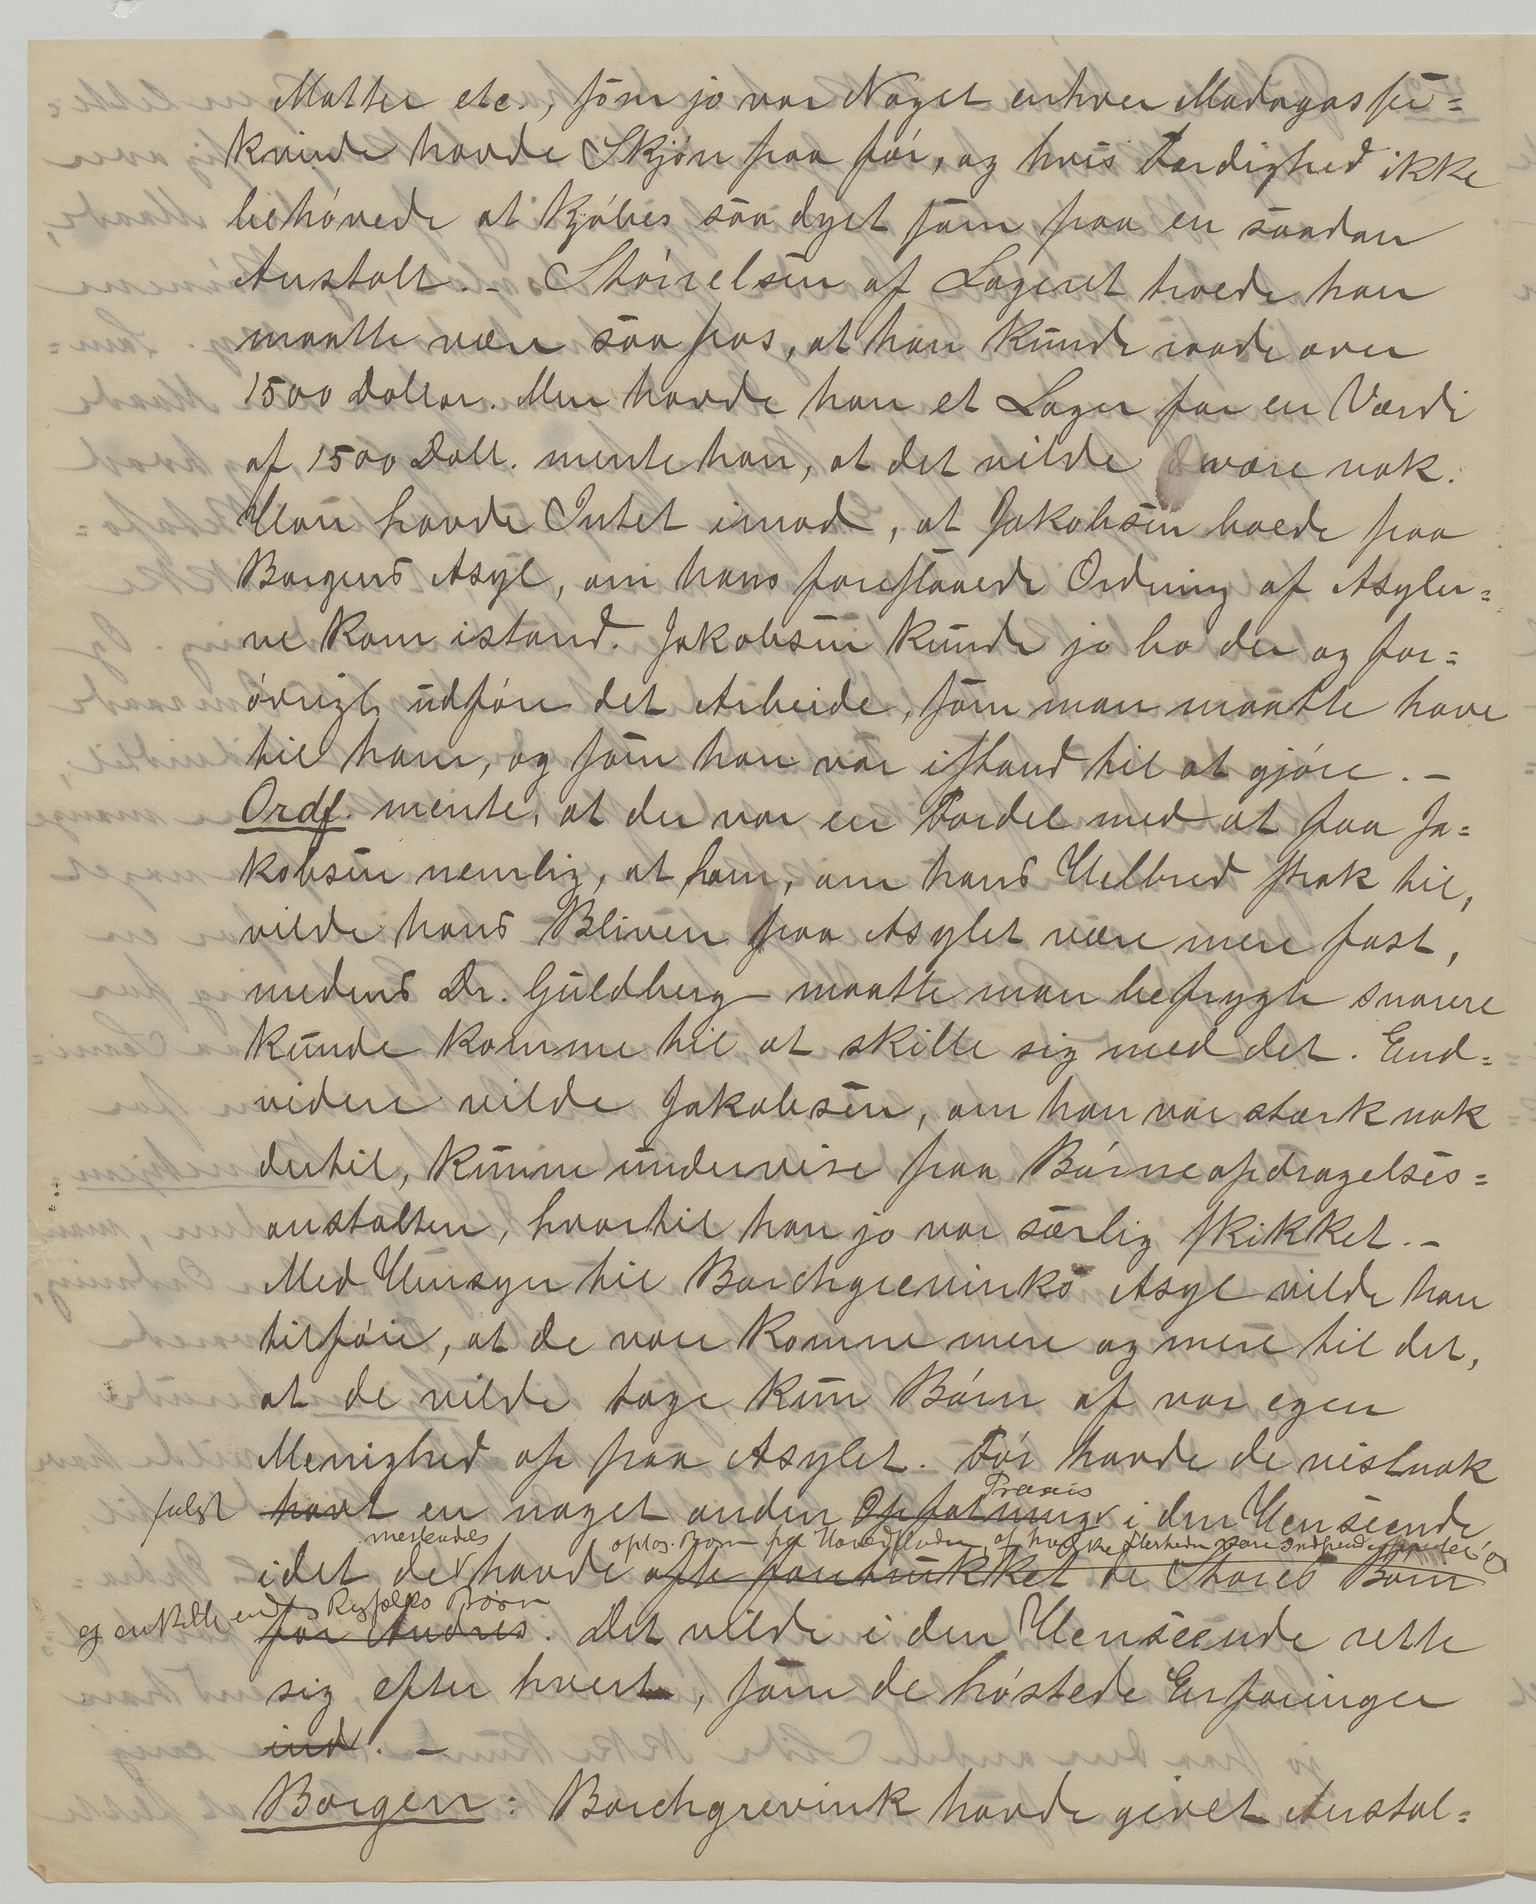 Matter etc., som jo var Noget enhver Madagasser=
kvinde havde Skjøn paa før, og hvis Færdighed ikke
behøvede at kjøbes saa dyrt som paa en saadan
Anstalt. – Størrelsen af Lageret troede han
maatte være saa pas, at han kunde raade over
1500 Dollar. Men havde han et Lager for en Værdi
af 1500 Doll. mente han, at det vilde være nok.
Han havde Intet imod, at Jakobsen boede paa
Borgens Asyl, om hans foreslaaede Ordning af Asyler=
ne kom istand. Jakobsen kunde jo bo der og for=
øvrigt udføre det Arbeide, som man maatte have
til ham, og som han var istand til at gjøre. –
Ordf. mente, at der var en Fordel med at faa Ja=
kobsen nemlig, at ham, om hans Helbred strak til,
vilde hans Bliven paa Asylet være mere fast,
medens Dr. Guldberg – maatte man befrygte snarere
kunde komme til at skille sig med det. End=
videre vilde Jakobsen, om han var stærk nok
dertil, kunne undervise paa Børneopdragelses=
anstalten, hvortil han jo var særlig skikket. –
Med Hensyn til Borchgrevinks Asyl vilde han
tilføie, at de vare komne mere og mere til det,
at de vilde tage kun Børn af vor egen
Menighed op paa Asylet. Før havde de vistnok
fulgt havt en noget anden Opfatning Praxis i den Henseende
idet de merendes havde optog. Børn fra Hovedstaden, af hvilke Flerheden vare Independenter, og ofte foretrukket de Stores Børn
og enkelte Rigfolks Børn for Andres. Det vilde i den Henseende rette
sig efter hvert, som de høstede Erfaringer
ind. –
Borgen: Borchgrevink havde givet Anstal=